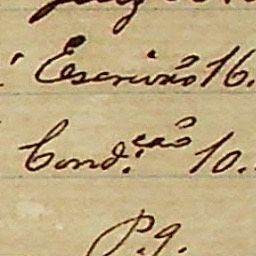 Escrivão 16.
Cond.ção 10.
P.g.